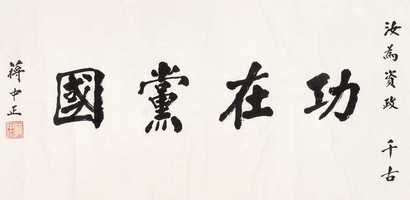 汝為資政 千古
功在黨國
蔣中正